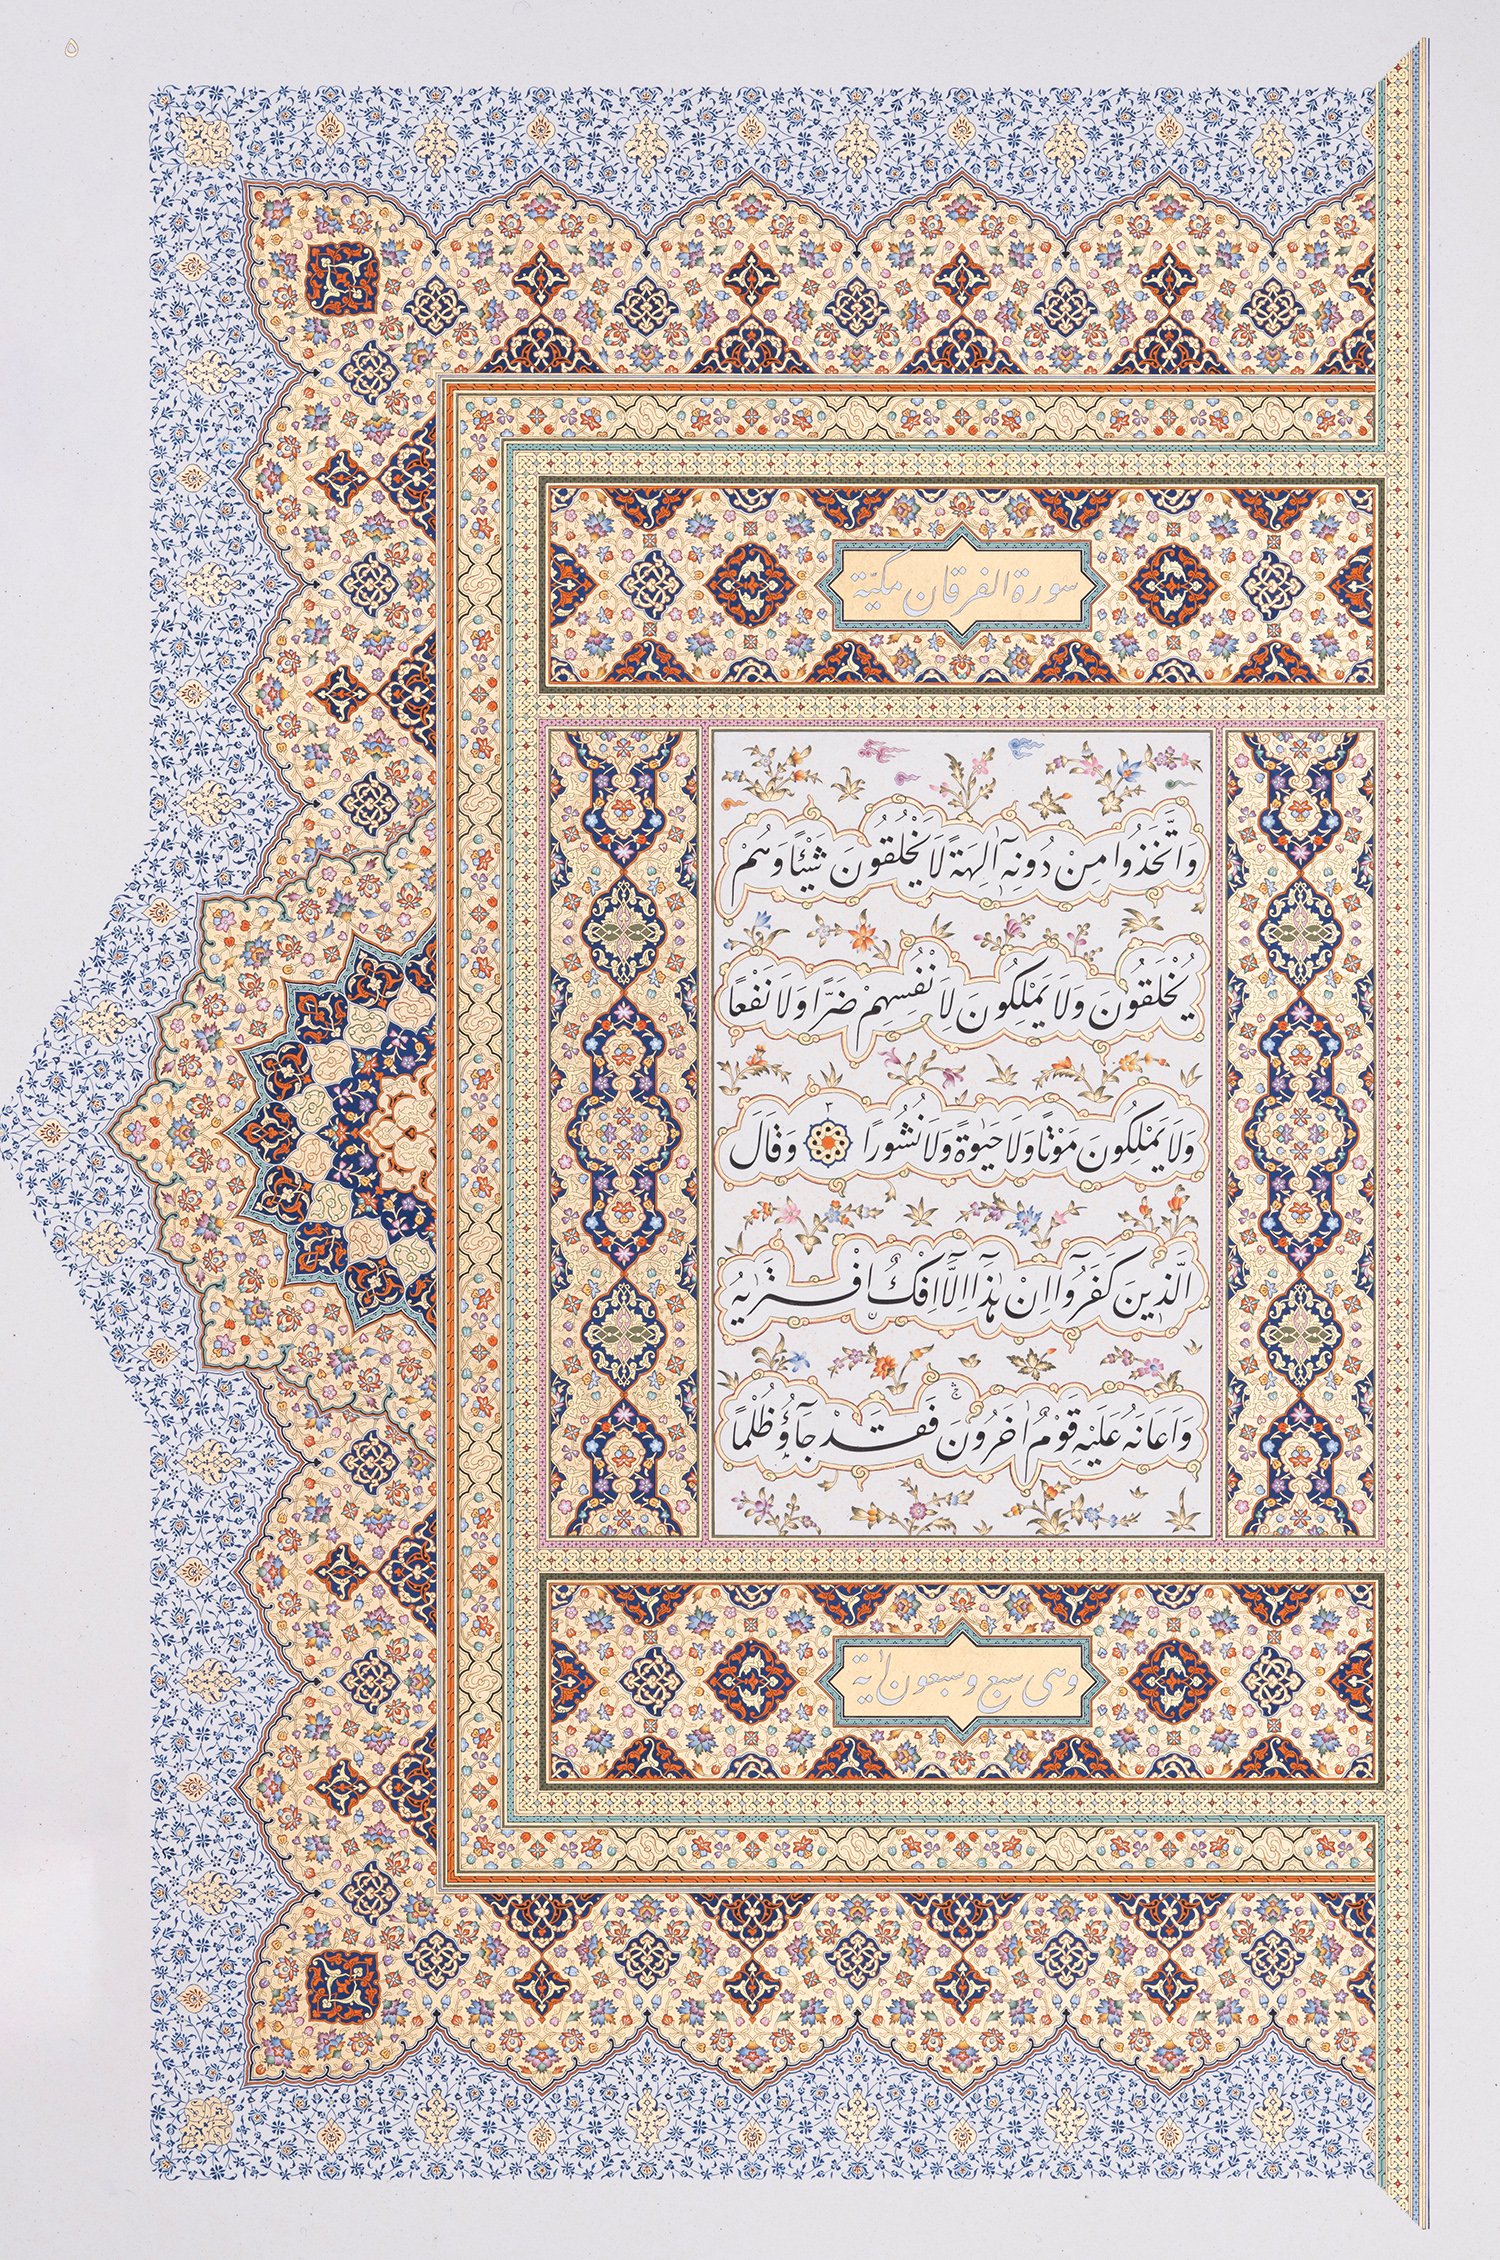 سورة الفرقان مكيّة
وَاتَّخَذُوا مِنْ دُونِهٖٓ اٰلِهَةً لَا يَخْلُقُونَ شَيْـًٔا وَهُمْ
يُخْلَقُونَ وَلَا يَمْلِكُونَ لِاَنْفُسِهِمْ ضَرًّا وَلَا نَفْعًا
وَلَا يَمْلِكُونَ مَوْتًا وَلَا حَيٰوةً وَلَا نُشُورًا ٣ وَقَالَ
الَّذٖينَ كَفَرُٓوا اِنْ هٰذَٓا اِلَّٓا اِفْكٌ افْتَرٰيهُ
وَاَعَانَهُ عَلَيْهِ قَوْمٌ اٰخَرُونَ ۚ فَقَدْ جَٓاؤُ ظُلْمًا
وهى سبع وسبعون اٰية